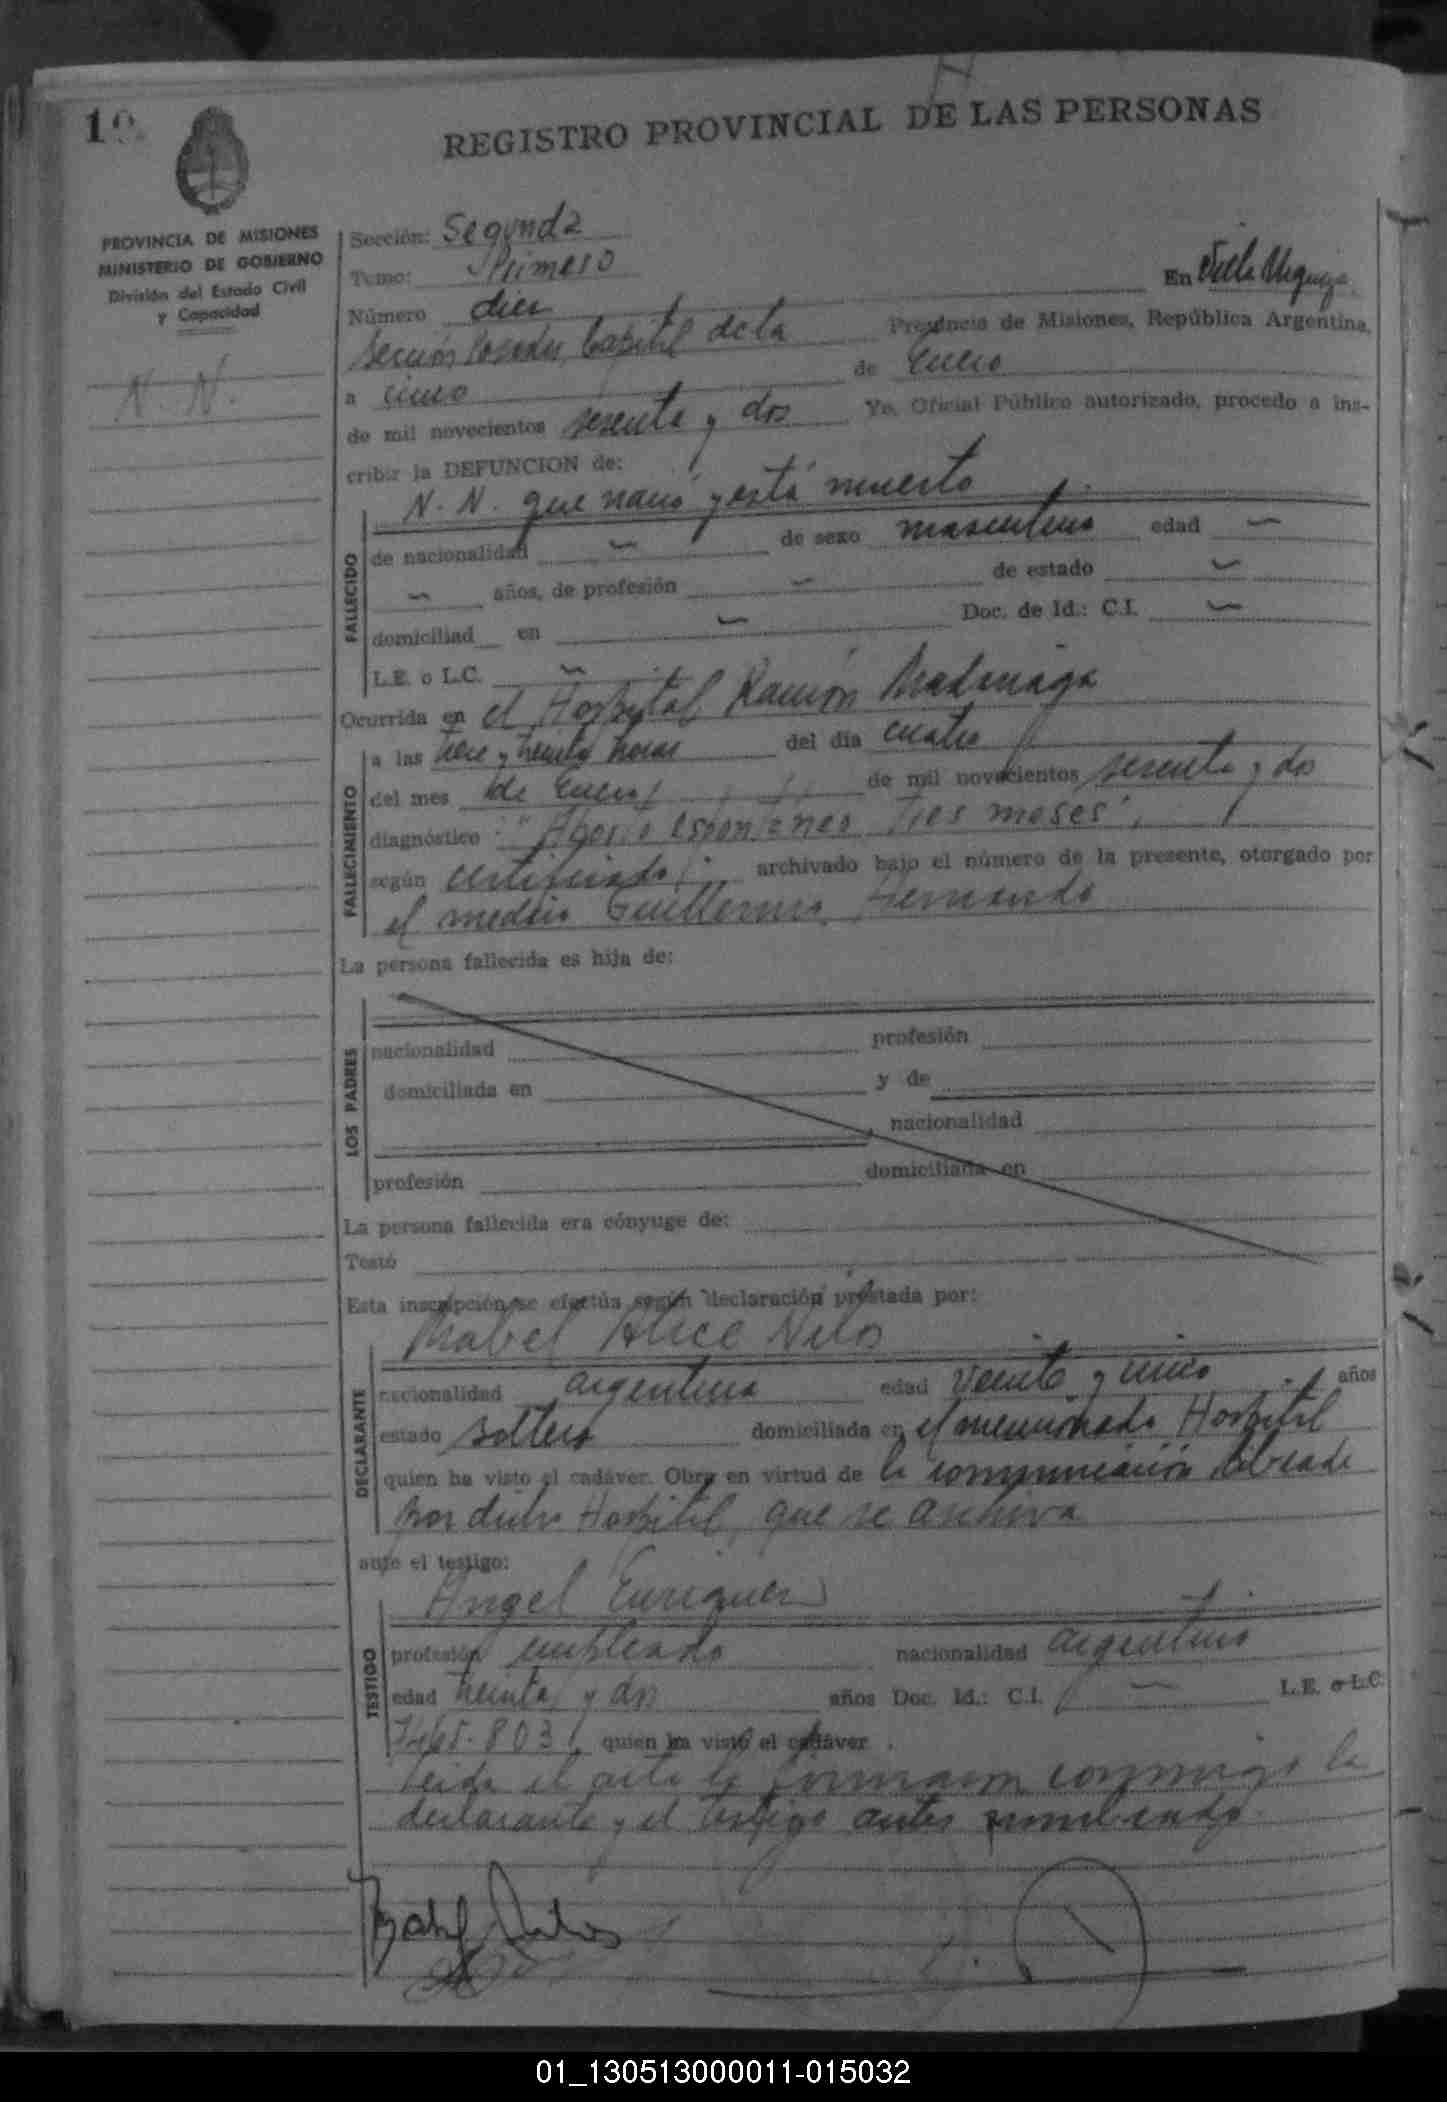 REGISTRO PROVINCIAL DE LAS PERSONAS
PROVINCIA DE MISIONES
MINISTERIO DE GOBIERNO
División del Estado Civil
y Capacidad
N. N.
Sección: Segunda
Tomo: Primero
En Villa Urquiza
Número diez
Sección Posadas, Capital de la Provincia de Misiones, República Argentina,
a cinco de Enero
de mil novecientos sesenta y dos Yo, Oficial Público autorizado, procedo a ins-
cribir la DEFUNCION de:
N. N. que nació y está muerto
FALLECIDO
de nacionalidad — de sexo masculino edad —
— años, de profesión — de estado —
domiciliad en — Doc. de Id.: C.I. —
L.E. o L.C. —
Ocurrida en el Hospital Ramón Madariaga
FALLECIMIENTO
a las trece y treinta horas del día cuatro
del mes de Enero de mil novecientos sesenta y dos
diagnóstico "Aborto espontáneo tres meses",
según certificado archivado bajo el número de la presente, otorgado por
el médico Guillermo Hernando
La persona fallecida es hija de:
LOS PADRES
nacionalidad profesión
domiciliada en y de
nacionalidad
profesión domiciliada en
La persona fallecida era cónyuge de:
Testó
Esta inscripción se efectúa según declaración prestada por:
Mabel Alice
DECLARANTE
nacionalidad argentina edad veinte y cinco años
estado soltera domiciliada en el mencionado Hospital
quien ha visto el cadáver. Obra en virtud de la comunicación librada
por dicho Hospital, que se archiva
ante el testigo:
Angel Enriquez
TESTIGO
profesión empleado nacionalidad argentino
edad treinta y dos años Doc. Id.: C.I. — L.E. o L.C.
7.465.803, quien ha visto el cadáver.
Leída el acta la firmaron conmigo la
declarante y el testigo antes nombrado.
01_130513000011-015032